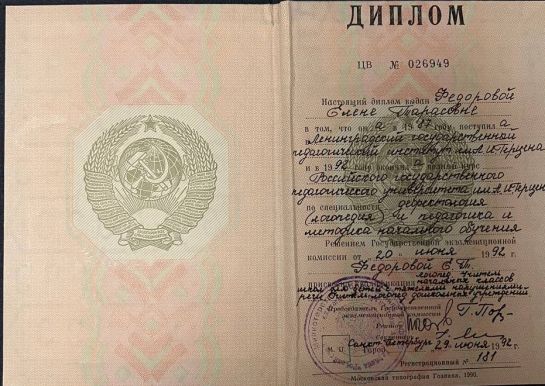 ДИПЛОМ
ЦВ № 026949
Настоящий диплом выдан Федоровой
Елене Тарасовне
в том, что он а в 1987 году поступил а
в Ленинградский государственный
педагогический институт им. А. И. Герцена
и в 1992 году окончил а полный курс
Российского государственного
педагогического университета им. А. И. Герцена
по специальности дефектология
(логопедия) и педагогика и
методика начального обучения
Решением Государственной экзаменационной
комиссии от 20 июня 1992 г.
Федоровой Е. Т.
присвоена квалификация логопед учитель
начальных классов
школ для детей с тяжелыми нарушениями
речи логопед дошкольных учреждений
Председатель Государственной
экзаменационной комиссии
Ректор
М. П. Город Санкт-Петербург 29 июня 1992 г.
Регистрационный № 181
Московская типография Гознака. 1990.